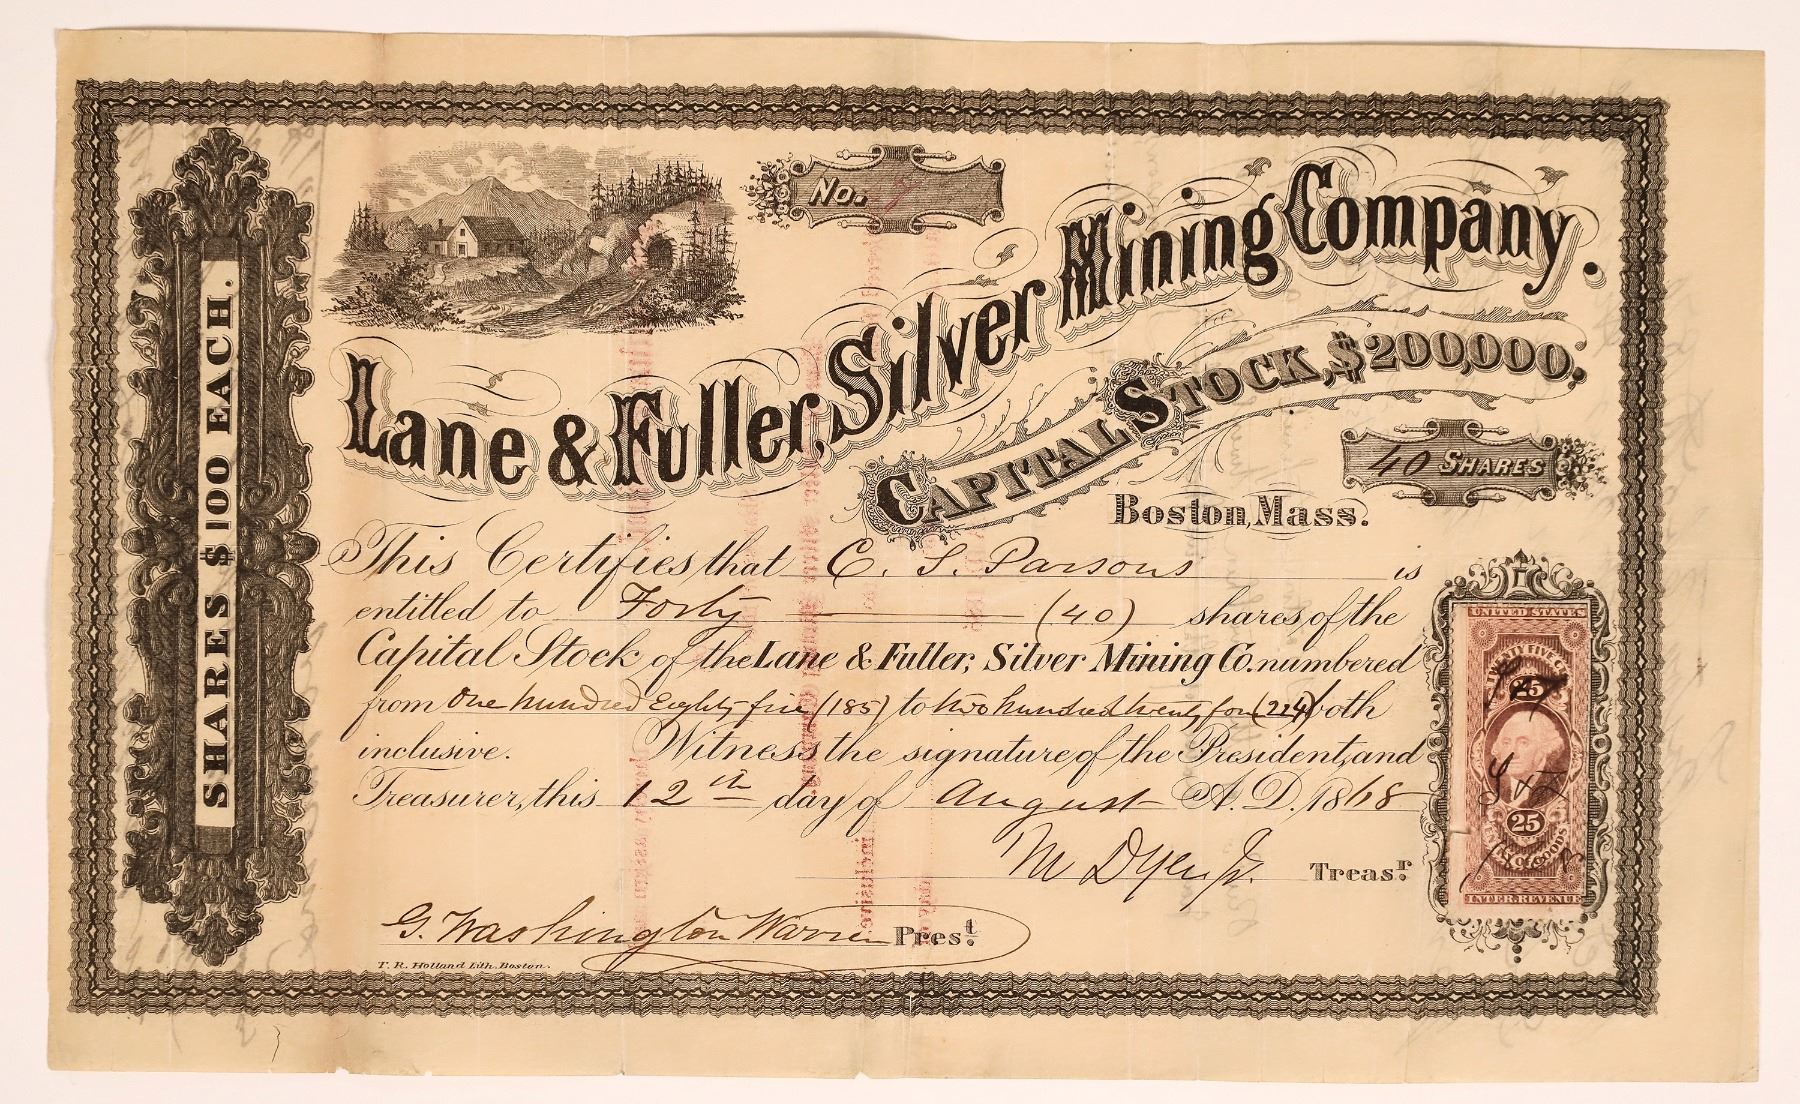 No. 9
Lane & Fuller, Silver Mining Company.
Capital Stock, $200,000,
40 Shares
Boston, Mass.
SHARES $100 EACH.
This Certifies that C. S. Parsons is
entitled to Forty (40) shares of the
Capital Stock of the Lane & Fuller, Silver Mining Co. numbered
from One hundred Eighty five (185) to two hundred twenty four (224) both
inclusive. Witness the signature of the President, and
Treasurer, this 12th day of August A.D. 1868
M Dyer Jr. Treasr.
G. Washington Warren Prest.
T. R. Holland Lith. Boston.
UNITED STATES
TWENTY FIVE
25
25
OF GOODS
INTER. REVENUE